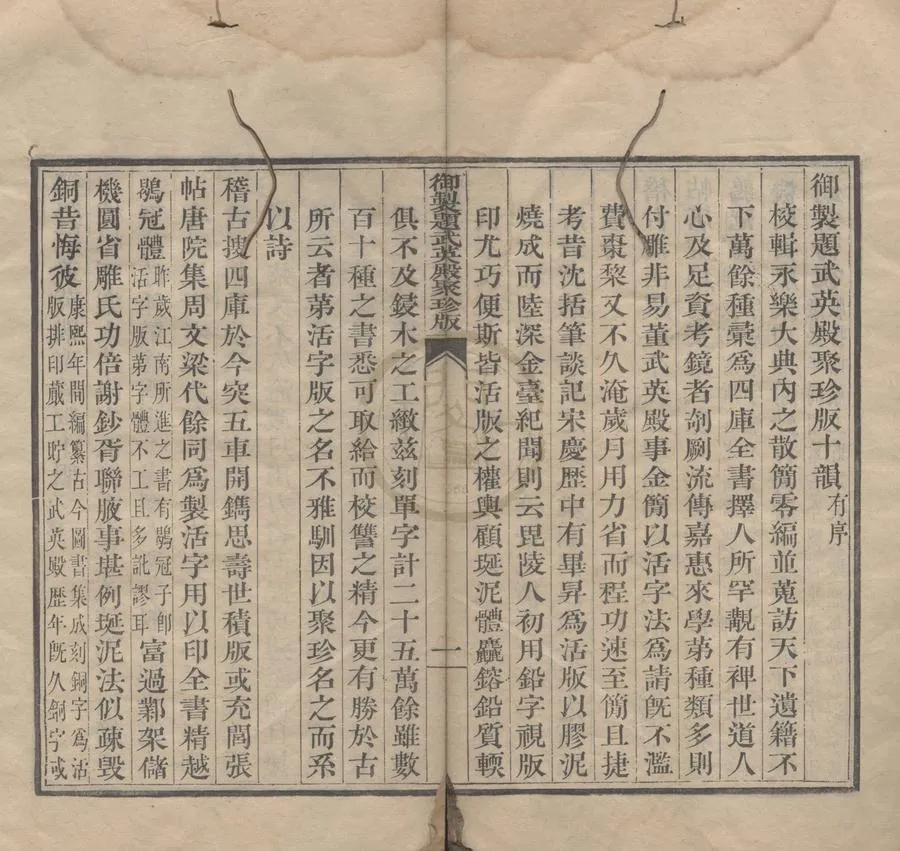 御製題武英殿聚珍版十韻有序
校輯永樂大典內之散簡零編並蒐訪天下遺籍不
下萬餘種彙爲四庫全書擇人所罕覯有裨世道人
心及足資考鏡者剞劂流傳嘉惠來學第種類多則
付雕非易董武英殿事金簡以活字法爲請旣不濫
費棗棃又不久淹歲月用力省而程功速至簡且捷
考昔沈括筆談記宋慶歷中有畢昇爲活版以膠泥
燒成而陸深金臺紀聞則云毘陵人初用鉛字視版
印尤巧便斯皆活版之權輿顧埏泥體麤鎔鉛質輭
御製題武英殿聚珍版
一
俱不及鋟木之工緻茲刻單字計二十五萬餘雖數
百十種之書悉可取給而校讐之精今更有勝於古
所云者第活字版之名不雅馴因以聚珍名之而系
以詩
稽古搜四庫於今突五車開鐫思壽世積版或充閭張
帖唐院集周文梁代餘同爲製活字用以印全書精越
鶡冠體昨歲江南所進之書有鶡冠子卽
活字版第字體不工且多訛謬耳富過鄴架儲
機圓省雕氏功倍謝鈔胥聯腋事堪例埏泥法似疎毀
銅昔悔彼康熙年間編纂古今圖書集成刻銅字爲活
版排印蕆工貯之武英殿歷年旣久銅字或